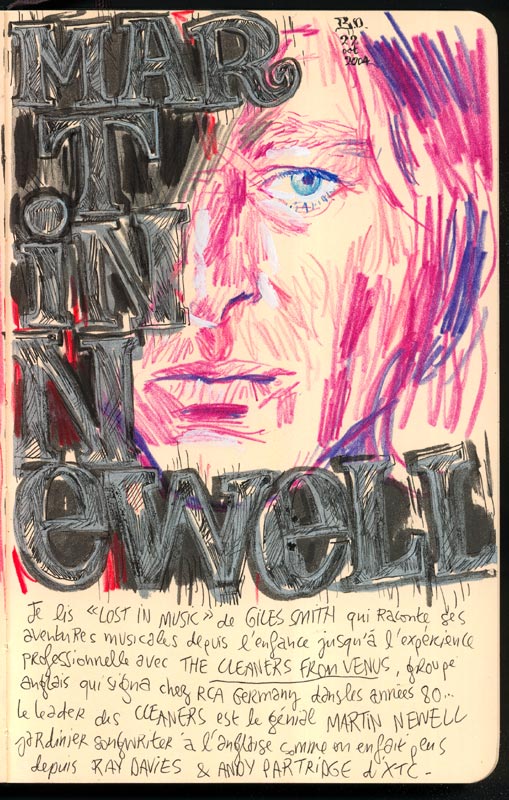 MAR
TiN
NewELL
B.O.
22
oct
2004
Je lis «LOST IN MUSIC» de GILES SMITH qui raconte ses
aventures musicales depuis l'enfance jusqu'à l'expérience
professionnelle avec THE CLEANERS FROM VENUS, groupe
anglais qui signa chez RCA Germany dans les années 80...
Le leader des CLEANERS est le génial MARTIN NEWELL
jardinier songwriter à l'anglaise comme on en fait plus
depuis RAY DAVIES & ANDY PARTRIDGE d'XTC-